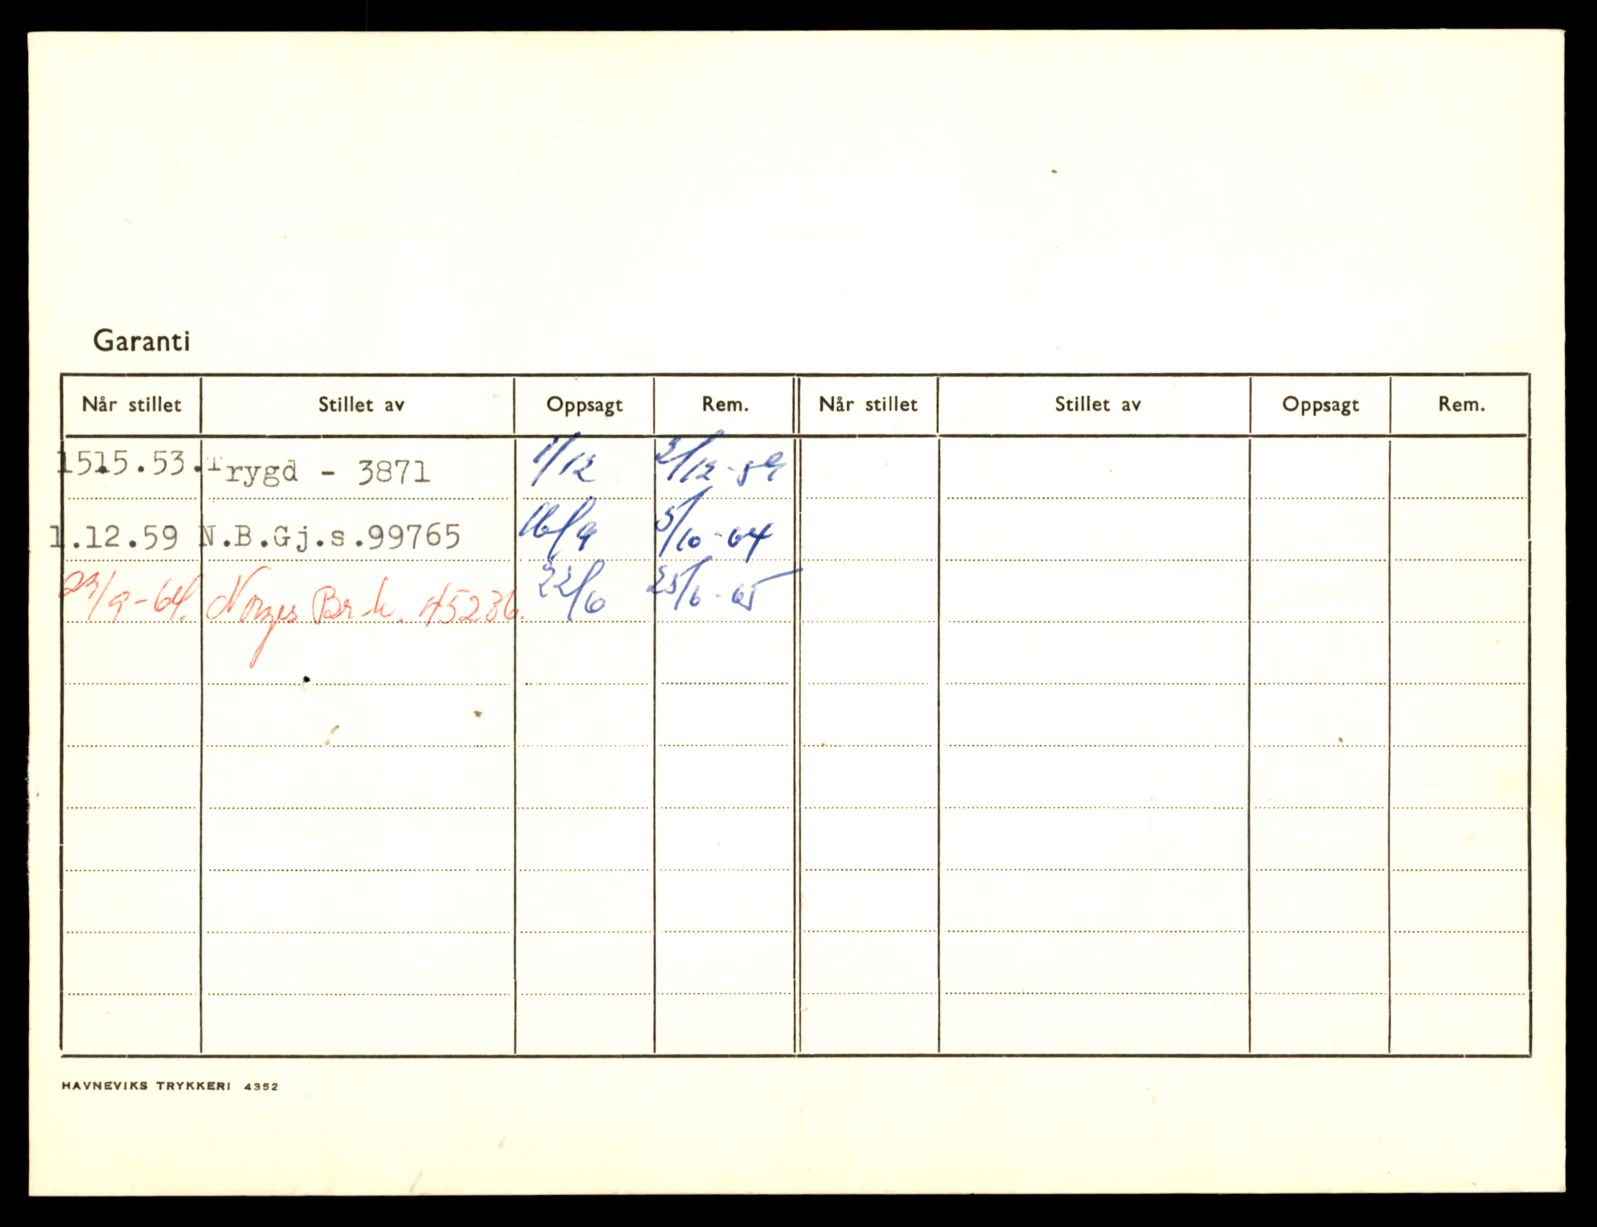 Garanti
Når stillet Stillet av Oppsagt Rem. Når stillet Stillet av Oppsagt Rem.
1515.53. Trygd - 3871 1/12 2/12-59
1.12.59 N.B.Gj.s.99765 16/9 5/10-64
/9-64. Norges Br.k. 45236. 22/6 25/6-65
HAVNEVIKS TRYKKERI 4352